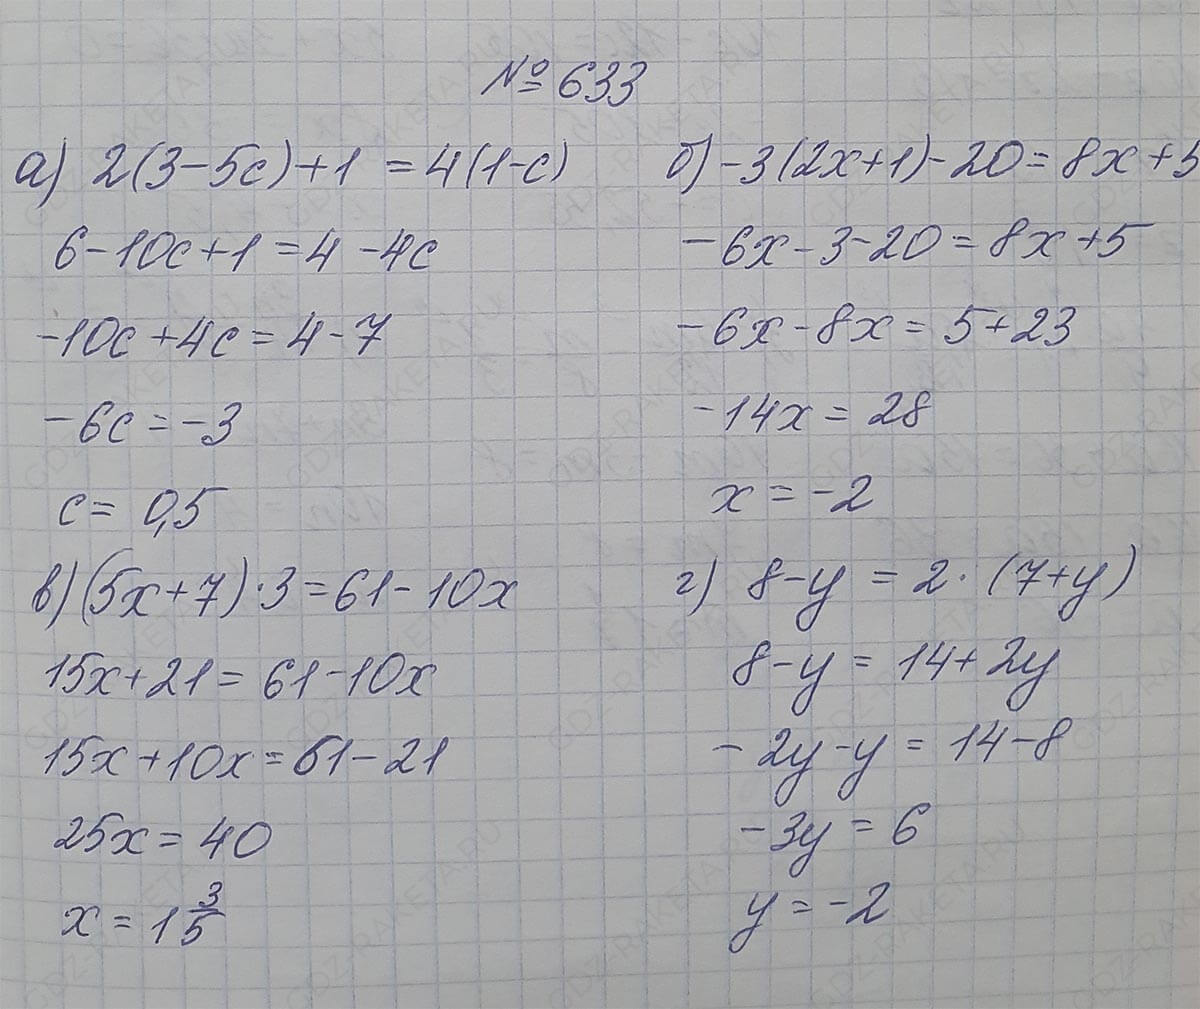 № 633
а) 2(3-5c)+1 = 4(1-c)
6-10c+1 = 4-4c
-10c+4c = 4-7
-6c = -3
c = 0,5
б) -3(2x+1)-20 = 8x+5
-6x-3-20 = 8x+5
-6x-8x = 5+23
-14x = 28
x = -2
в) (5x+7)·3 = 61-10x
15x+21 = 61-10x
15x+10x = 61-21
25x = 40
x = 1 3/5
г) 8-y = 2·(7+y)
8-y = 14+2y
-2y-y = 14-8
-3y = 6
y = -2
GDZ-RAKETA.RU